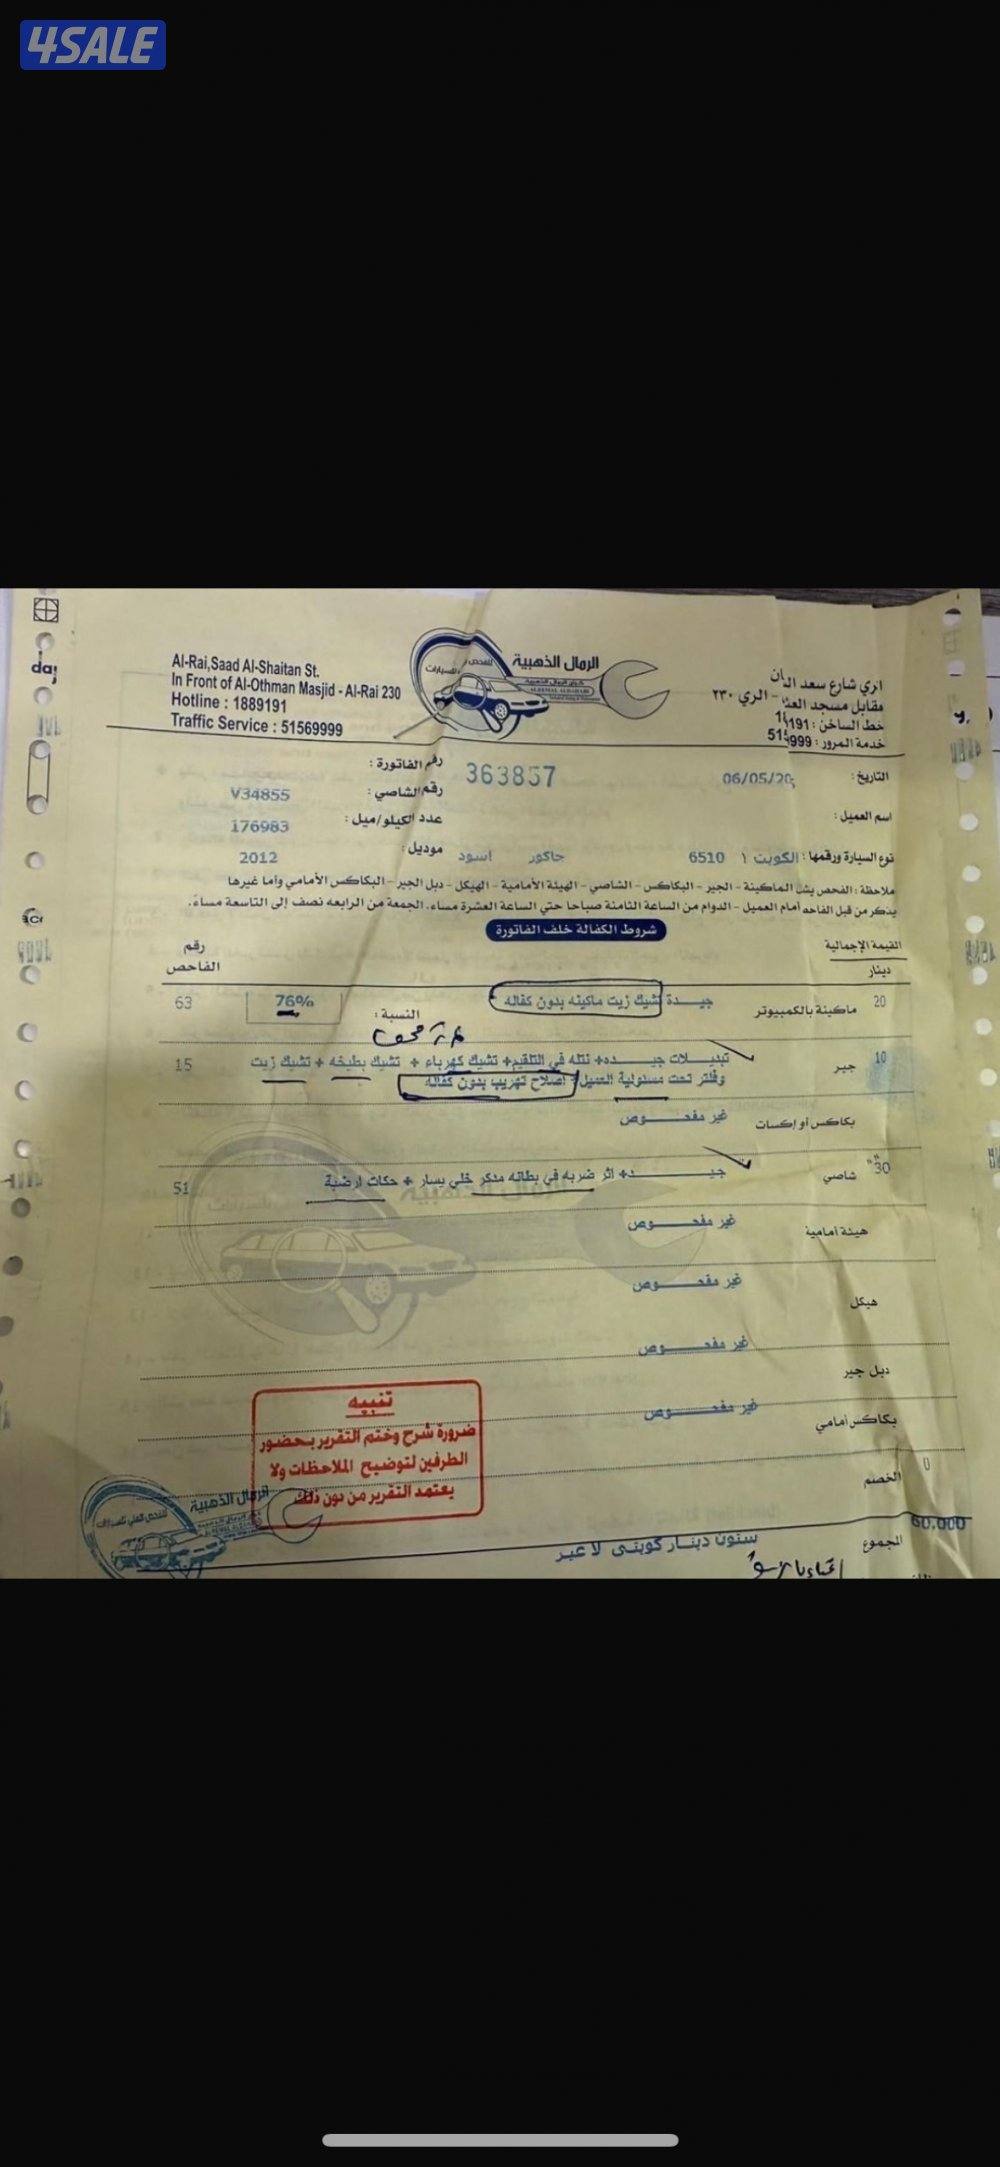 4SALE
Al-Rai,Saad Al-Shaitan St.
In Front of Al-Othman Masjid - Al-Rai 230
Hotline : 1889191
Traffic Service : 51569999
الرمال الذهبية
للفحص
للسيارات
الري شارع سعد
مقابل مسجد - الري ٢٣٠
خط الساخن :
خدمة المرور :
التاريخ: 06/05/20
رقم الفاتورة : 363857
رقم الشاصي : V34855
اسم العميل:
عدد الكيلو/ميل : 176983
نوع السيارة ورقمها : الكويت ١ 6510 جاكور اسود
موديل : 2012
ملاحظة : الفحص يشمل الماكينة - الجير - البكاكس - الشاصي - الهيئة الأمامية - الهيكل - دبل الجير - البكاكس الأمامي وأما غيرها
يذكر من قبل الفاحص أمام العميل - الدوام من الساعة الثامنة صباحا حتي الساعة العشرة مساء. الجمعة من الرابعه نصف إلى التاسعة مساء.
شروط الكفالة خلف الفاتورة
القيمة الإجمالية
دينار
رقم
الفاحص
20 ماكينة بالكمبيوتر جيـــدة تشيك زيت ماكينه بدون كفاله النسبة : 76% 63
10 جير تبديـلات جيـــده+ نتله في التلقيم+ تشيك كهرباء + تشيك بطيخه + تشيك زيت 15
وفلتر تحت مسئولية العميل+ اصلاح تهريب بدون كفاله
بكاكس أو إكسات غير مفحـــوص
30 شاصي جيـــد+ اثر ضربه في بطانه مدكر خلي يسار + حكات ارضية 51
هيئة امامية غير مفحـــوص
هيكل غير مفحـــوص
دبل جير غير مفحـــوص
بكاكس أمامي غير مفحـــوص
الخصم 0
المجموع 60.000
ستون دينار كويتي لا غير
تنبيه
ضرورة شرح وختم التقرير بحضور
الطرفين لتوضيح الملاحظات ولا
يعتمد التقرير من دون ذلك
الرمال الذهبية
للفحص الفني للسيارات